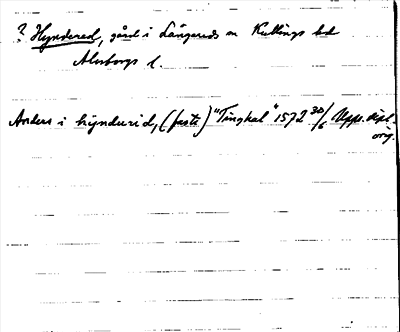 ? Hyndered, gård i Långareds sn Kullings hd
Älvsborgs l.
Anders i hyndurid, (faste) "Tingkal" 1572 30/6 Upps. dipl.
orig.